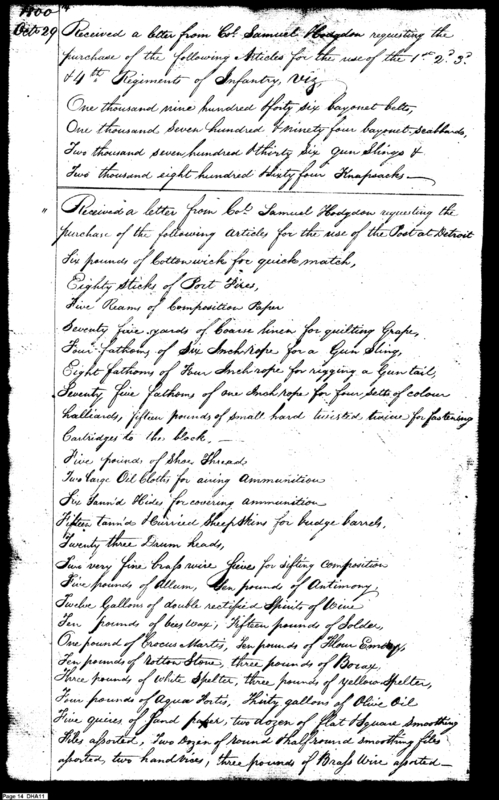 1800
Octr 29 Received a letter from Col. Samuel Hodgdon requesting the
purchase of the following Articles for the use of the 1st 2d 3d
& 4th Regiments of Infantry, viz
One thousand nine hundred & forty six bayonet belts,
One thousand seven hundred & ninety four bayonet scabbards,
Two thousand seven hundred & thirty six Gun Slings &
Two thousand eight hundred & sixty four Knapsacks —
" Received a letter from Col. Samuel Hodgdon requesting the
purchase of the following Articles for the use of the Post at Detroit
Six pounds of Cotton wick for quick match,
Eighty Sticks of Port Fires,
Five Reams of Composition Paper
Seventy five yards of Coarse linen for quilting Grape,
Four fathoms of Six Inch rope for a Gun Sling,
Eight fathoms of Four Inch rope for rigging a Gun tail,
Seventy five fathoms of one Inch rope for four setts of colour
halliards, fifteen pounds of small hard twisted twine for fastening
Cartridges to the block, —
Five pounds of Shoe Thread
Two large Oil Cloths for airing Ammunition
Six Tann'd Hides for covering ammunition
Fifteen tann'd & curried Sheep Skins for budge barrels,
Twenty three Drum heads,
Two very fine brass wire sieves for sifting composition
Five pounds of Allum, Ten pound of Antimony
Twelve Gallons of double rectified Spirits of Wine
Ten pounds of bees wax, Fifteen pounds of Solder,
One pound of Crocus Martis, Ten pounds of Flour Emery,
Ten pounds of Rotton Stone, three pounds of Borax,
Three pounds of white Spelter, three pounds of yellow Spelter,
Four pounds of Aqua Fortis, Thirty gallons of Olive Oil
Five quires of Sand paper, two dozen of flat & square smoothing
Files assorted, Two Dozen of round & half round smoothing files
assorted, two hand vices, three pounds of Brass Wire assorted —
Page 14 DHA11